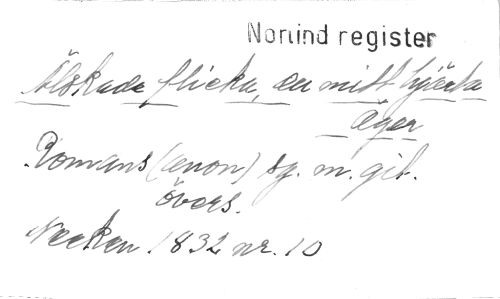 Nonind register
Älskade flicka, du mitt hjärta
äger
Romans (anon) sg. m. git.
övers.
Necken 1832 nr. 10